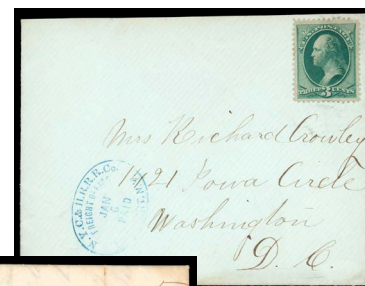 U.S. POSTAGE
THREE 3 CENTS
Mrs Richard Crowley
1421 Iowa Circle
Washington
D. C.
N.Y.C. & H.R.R.R. Co.
FREIGHT
JAN
6
PAID